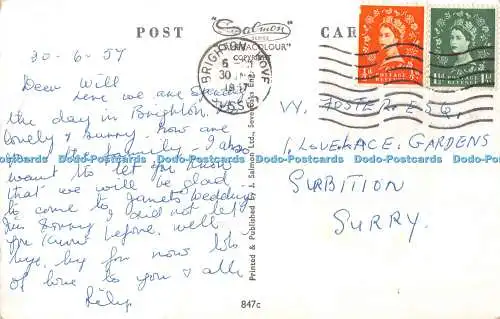 POST
Salmon
SERIES
CAMERACOLOUR
COPYRIGHT
CAR
30-6-57
BRIGHTON HOVE
6
30
1957
SUSSEX
½D
POSTAGE REVENUE
1½D
Dear Will
here we are spending
the day in Brighton.
lovely & sunny. how are
the family. I also
want to let you know
that we will be glad
to come to Janets wedding
I'm sorry I did not let
you know before. well
bye, bye for now lots
of love to you & all
W. FOSTER. ESQ,
1, LOVELACE. GARDENS
SURBITION
SURRY.
Printed & Published by J. Salmon Ltd., Sevenoaks, Eng.
847c
Dodo-Postcards Dodo-Postcards Dodo-Postcards Dodo-Postcards Dodo-Postcards